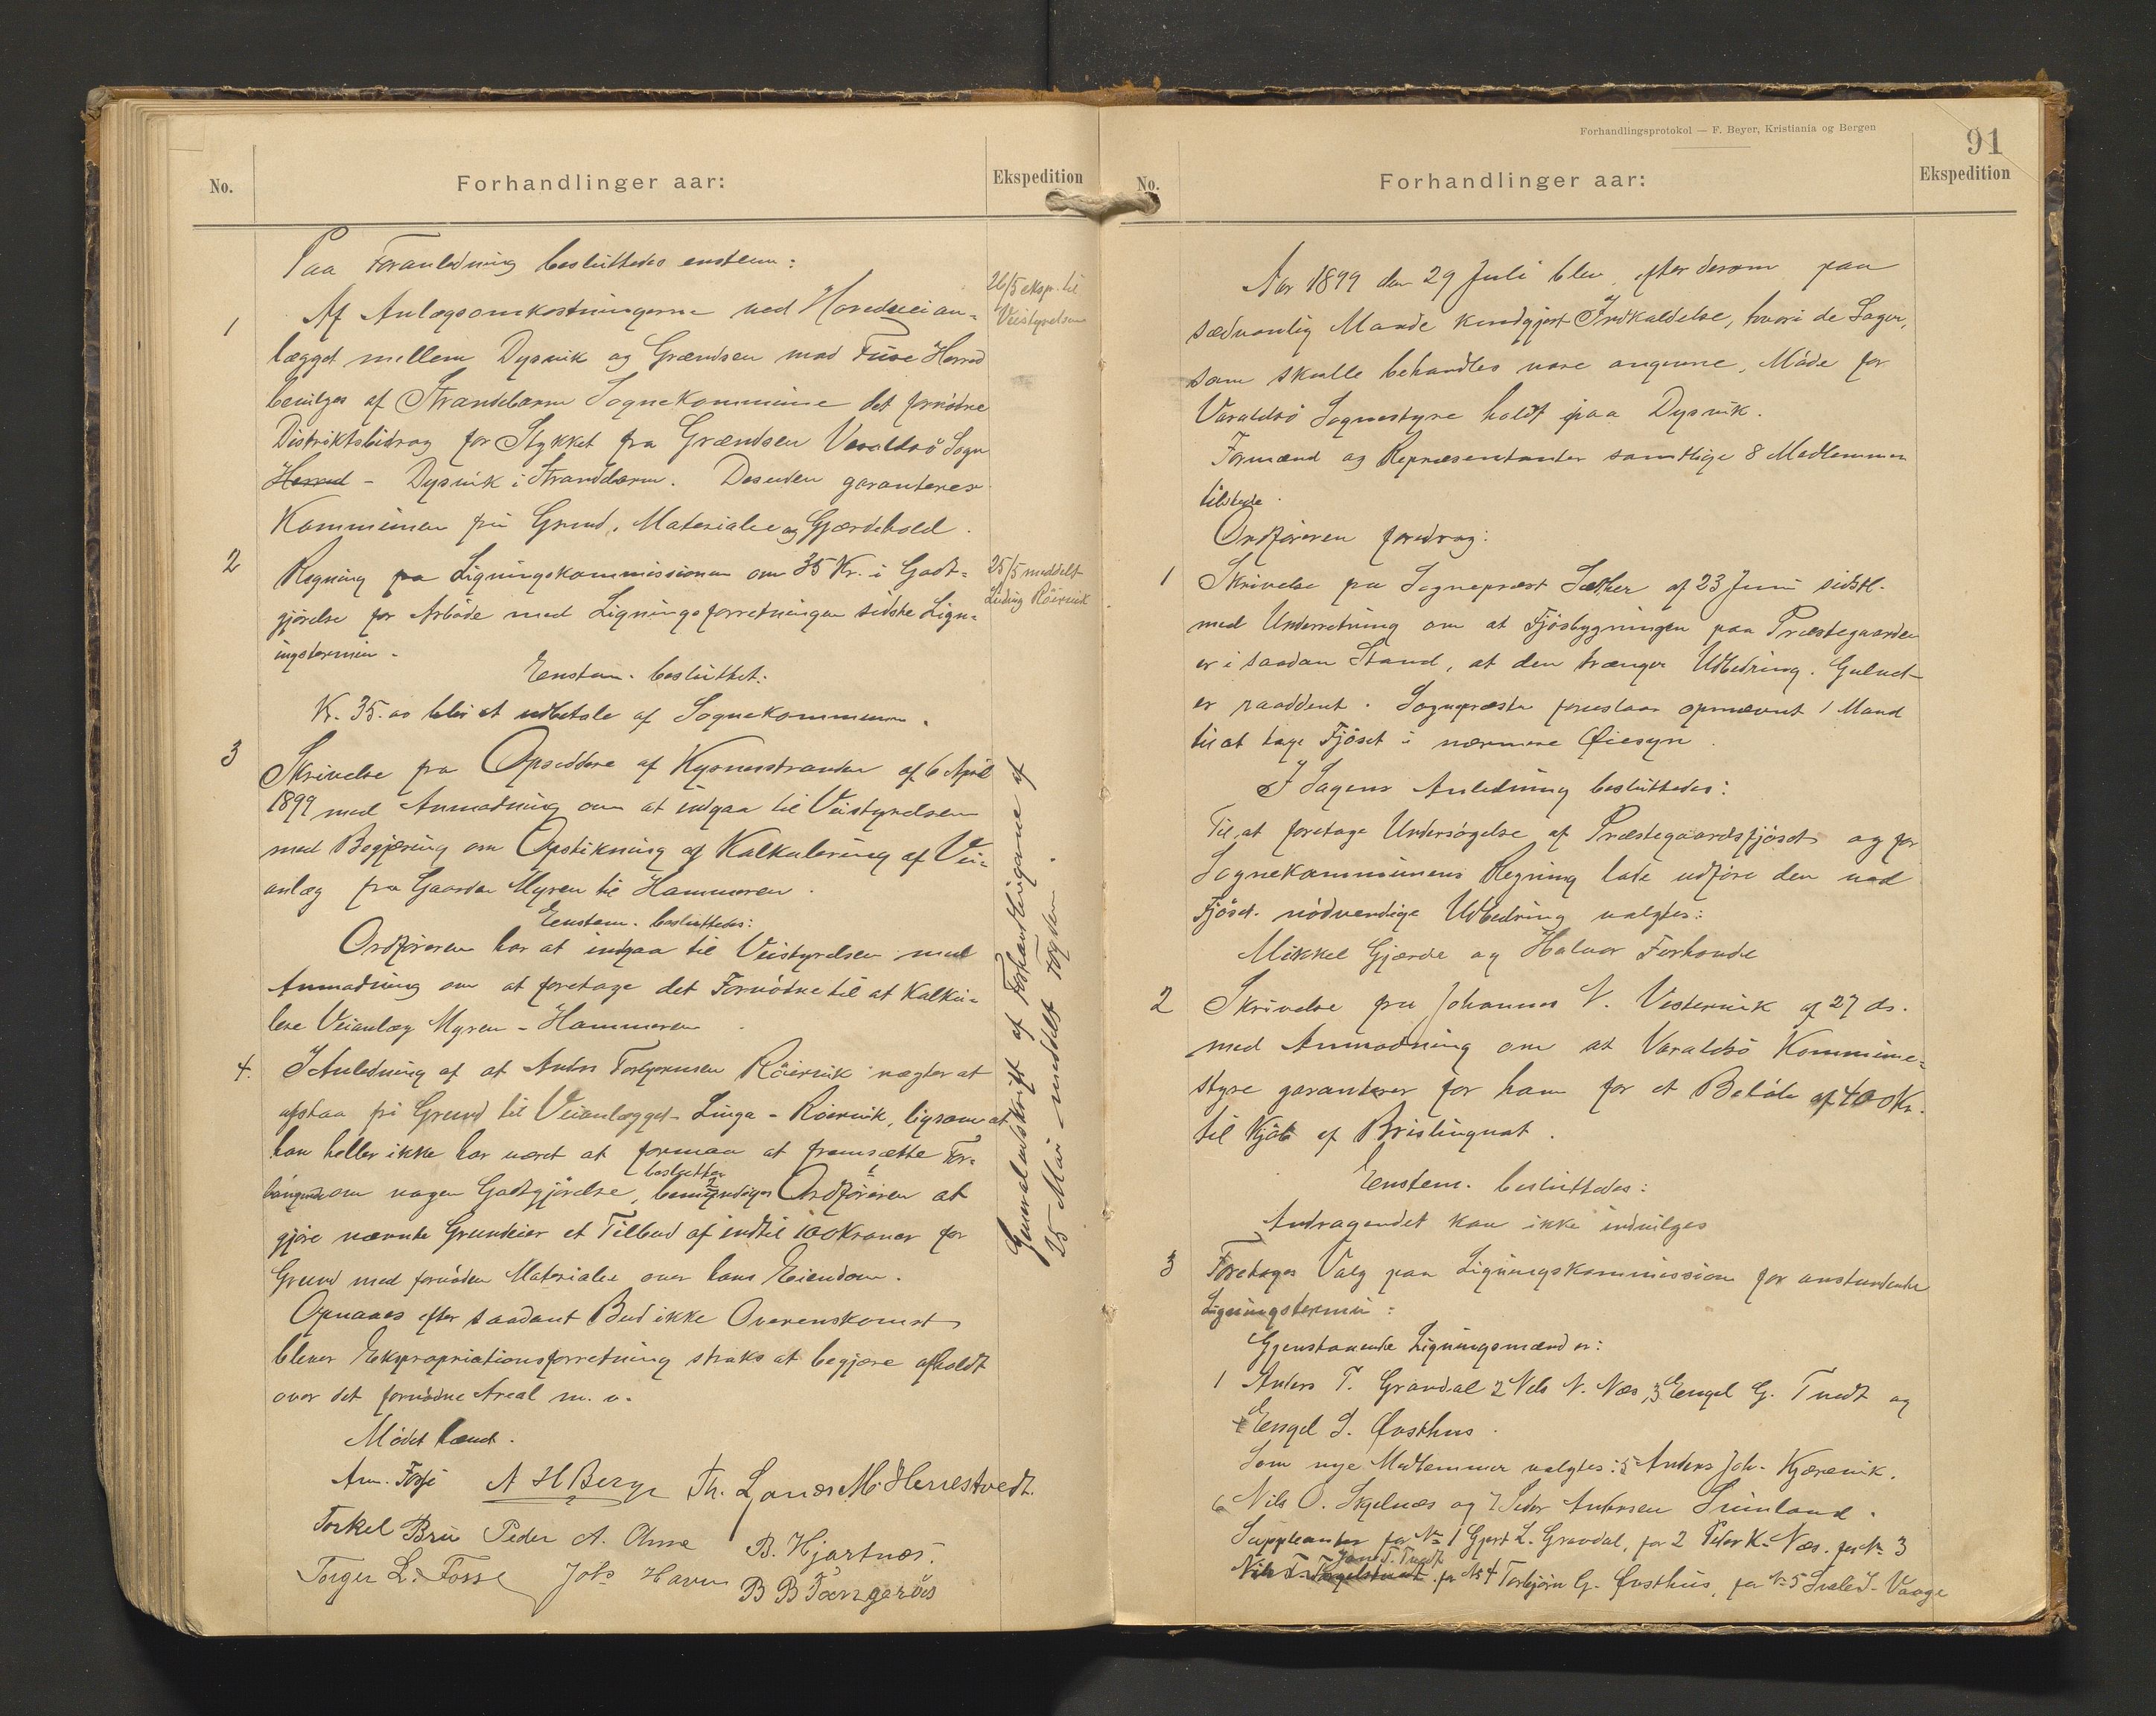 No.
Forhandlinger aar:
Ekspedition
Paa Foranledning besluttedes enstem:
1 Af Anlægsomkostningerne ved Hovedveian-
lægget mellem Dysvik og Grændsen mod Fuse Herred
bevilges af Strandebarm Sognekommune det fornødne
Distriktsbidrag for Stykket fra Grændsen Varaldsö Sogn
Herred - Dysvik i Strandebarm. Desuden garanteres
Kommunen fri Grund, Materialer og Gjærdehold.
26/5 eksp. til
Veistyrelsen
2 Regning fra Ligningskommissionen om 35 Kr. i Godt-
gjörelse for Arbeide med Ligningsforretningen sidste Lign-
ingstermin.
25/5 meddelt
Röirvik
Enstem. besluttet:
Kr. 35.00 blir at udbetale af Sognekommunen.
3 Skrivelse fra Opsiddere af Kysnesstranden af 6 April
1899 med Anmodning om at indgaa til Veistyrelsen
med Begjæring om Opstikning og Kalkulering af Vei-
anlæg fra Gaarden Myren til Hammeren.
Eenstem. besluttedes:
Ordföreren har at indgaa til Veistyrelsen med
Anmodning om at foretage det Fornödne til at Kalku-
lere Veianlæg Myren - Hammeren.
4. I Anledning af at Anders Torbjornsen Röiervik nægter at
afstaa fri Grund til Veianlægget Linga - Röiervik, ligesom at
han heller ikke har været at formaa at fremsætte For-
langende om nogen Godtgjörelse, besluttes bemyndiges Ordföreren at
gjöre nævnte Grundeier et Tilbud af indtil 100 Kroner for
Grund med fornöden Materiale over hans Eiendom.
Opnaaes efter saadant Bud ikke Overenskomst
bliver Ekspropriationsforretning straks at begjære afholdt
over det fornödne Areal m. v.
Mödet hævet.
Generaludskrift af Forhandlingerne af
25 Mai meddelt Fogden.
Am. Fosse A H Berge Th. Lones M. Herrestvedt.
Torkel Bru Peder A. Omre B. Hjartnæs.
Torger L. Fosse Johs Havn B B Tangeraas
Forhandlingsprotokol — F. Beyer, Kristiania og Bergen
91
No.
Forhandlinger aar:
Ekspedition
Aar 1899 den 29 Juli blev, efter derom paa
sædvanlig Maade kundgjort Indkaldelse, hvori de Sager,
som skulle behandles vare angivne, Möde for
Varaldsö Sognestyre holdt paa Dysvik.
Formænd og Repræsentanter samtlige 8 Medlemmer
tilstede.
Ordföreren foredrog:
1 Skrivelse fra Sogneprest Sæther af 23 Juni sidstl.
med Underretning om at Fjösbygningen paa Præstegaarden
er i saadan Stand, at den trænger Udbedring. Gulvet
er raaddent. Sognepræsten foreslaar opnævnt 1 Mand
til at tage Fjöset i nærmere Øiesyn.
I Sagens Anledning besluttedes:
Til at foretage Undersögelse af Præstegaardsfjöset og for
Sognekommunens Regning lade udföre den ved
Fjöset nödvendige Udbedring valgtes:
Mikkel Gjærde og Halvor Forhonde
2 Skrivelse fra Johannes N. Vestervik af 27 ds.
med Anmodning om at Varaldsö Kommune-
styre garanterer for ham for et Belöb af 400 Kr.
til Kjöb af Brislingnot.
Enstem. besluttedes:
Andragendet kan ikke indvilges
3 Foretages Valg paa Ligningskommission for anstundende
Ligningstermin:
Gjenstaaende Ligningsmænd er:
1 Anders T. Gravdal 2 Nels N. Næs, 3 Eengel G. Tvedt og
4 Eengel S. Øvsthus.
Som nye Medlemmer valgtes: 5 Anders Joh. Kjærevik.
6 Nils O. Skjelnæs og 7 Peder Andersen
Suppleanter for No 1 Gjert L. Gravdal, for 2 Peder K. Næs. for No 3
Jon T. Tvedt
for No 4 Torbjörn G. Øvsthus, for No 5 Vaage